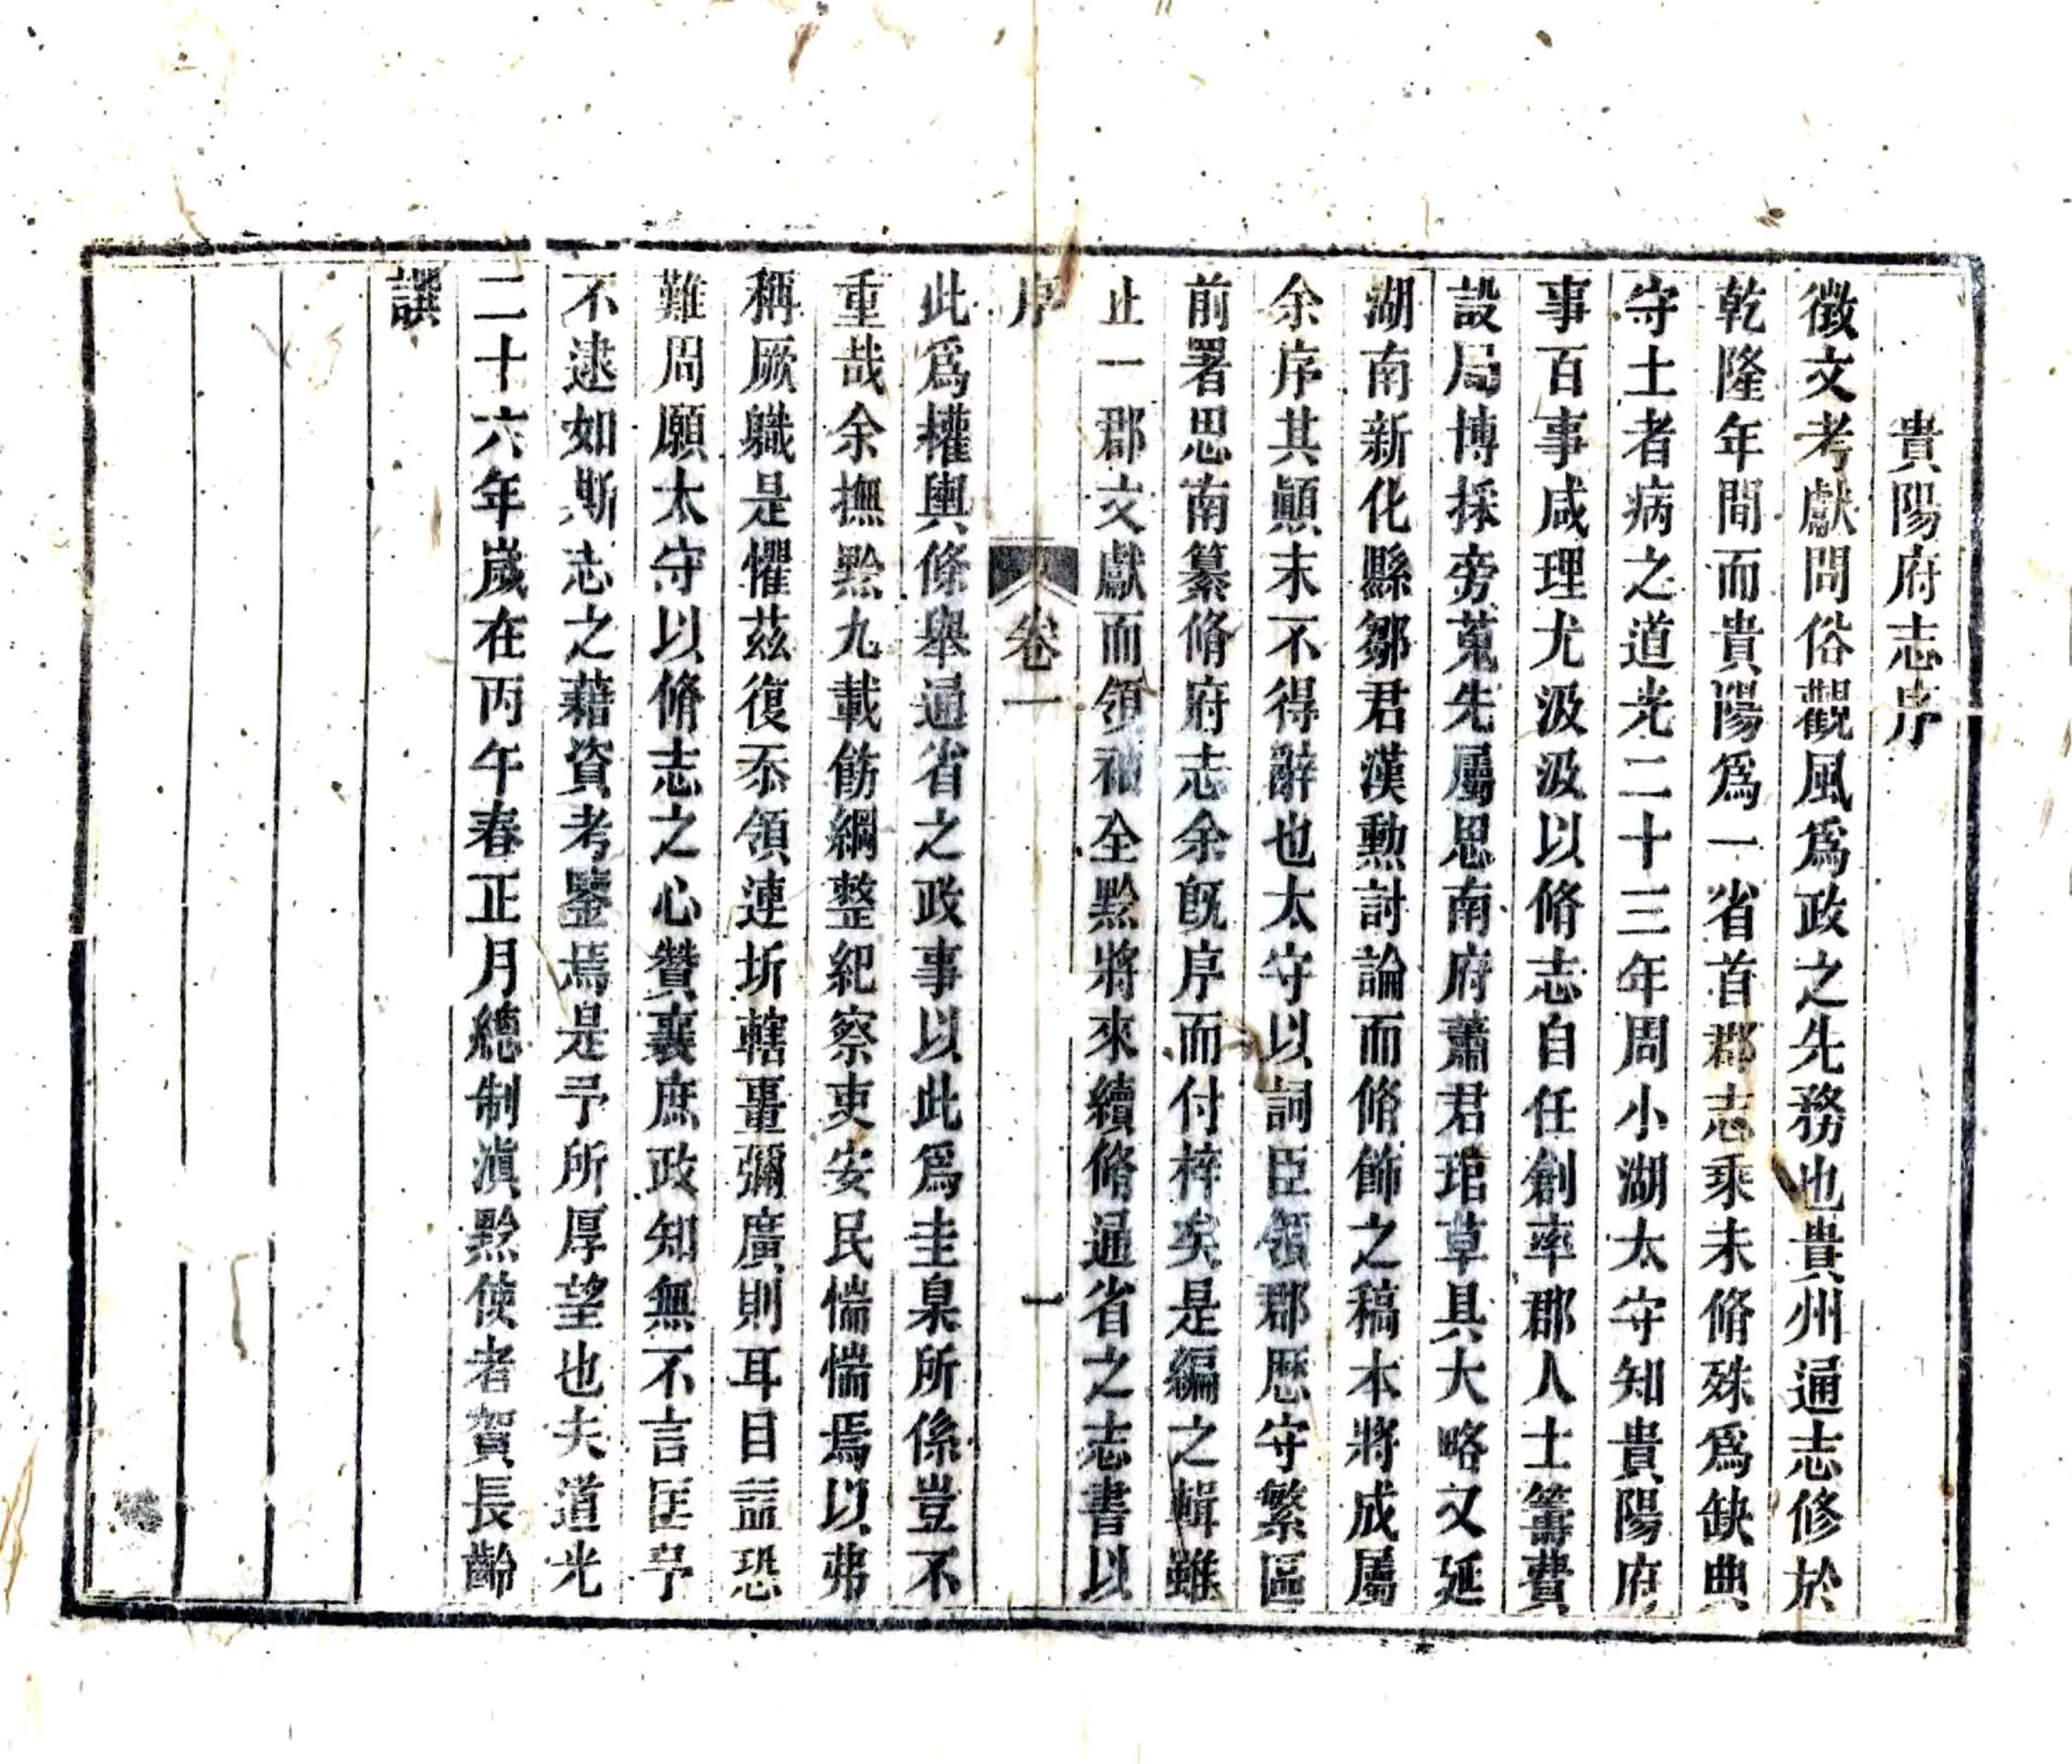 貴陽府志序
徵文考獻問俗觀風爲政之先務也貴州通志修於
乾隆年間而貴陽爲一省首郡志乘未脩殊爲缺典
守土者病之道光二十三年周小湖太守知貴陽府
事百事咸理尤汲汲以脩志自任創率郡人士籌費
設局博採旁蒐先屬思南府蕭君琯草具大略又延
湖南新化縣鄒君漢勲討論而脩飾之稿本將成屬
余序其顚末不得辭也太守以詞臣領郡歷守繁區
前署思南纂脩府志余旣序而付梓矣是編之輯雖
止一郡文獻而領袖全黔將來續脩通省之志書以
序 卷一 一
此爲權輿條舉通省之政事以此爲圭臬所係豈不
重哉余撫黔九載飭綱整紀察吏安民惴惴焉以弗
稱厥職是懼茲復忝領連圻轄畺彌廣則耳目益恐
難周願太守以脩志之心贊襄庶政知無不言匡予
不逮如斯志之藉資考鑒焉是予所厚望也夫道光
二十六年歲在丙午春正月總制滇黔使者賀長齡
譔